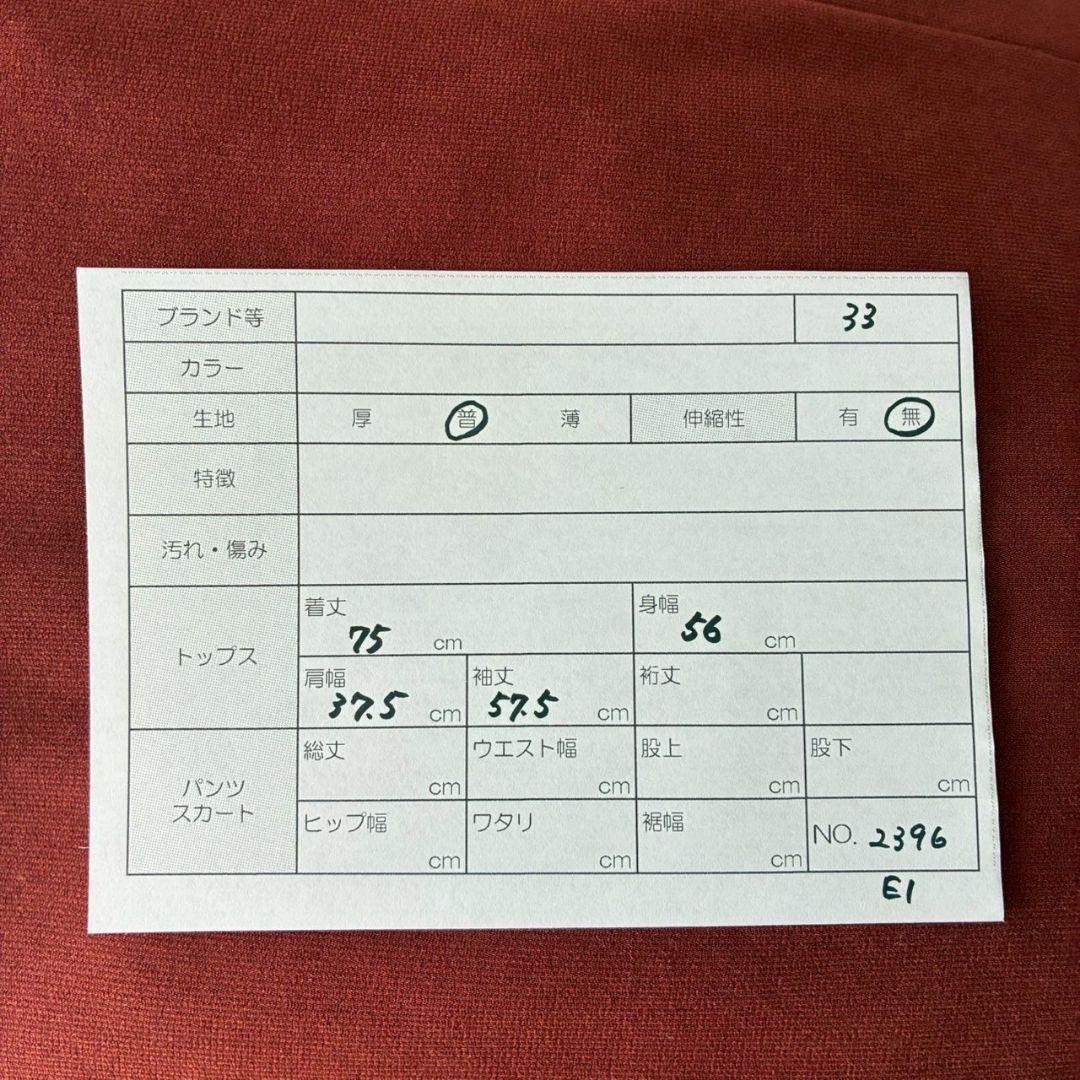 ブランド等 33
カラー
生地 厚 普 薄 伸縮性 有 無
特徴
汚れ・傷み
トップス
着丈 75 cm 身幅 56 cm
肩幅 37.5 cm 袖丈 57.5 cm 裄丈 cm
パンツ
スカート
総丈 cm ウエスト幅 cm 股上 cm 股下 cm
ヒップ幅 cm ワタリ cm 裾幅 cm NO. 2396
E1